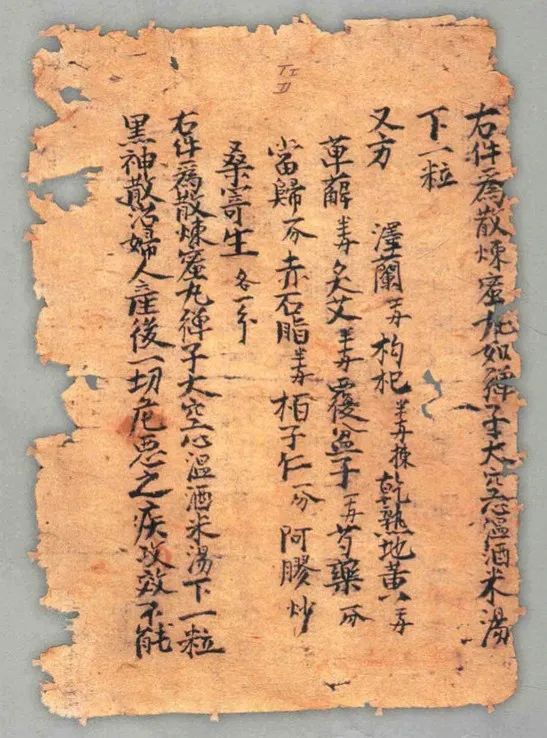 TI
D
右件爲散煉蜜丸如彈子大空心温酒米湯
下一粒
又方 澤蘭 枸杞 乾熟地黃
萆薢半两炙艾半两覆盆子 芍藥
當歸一分赤石脂半两栢子仁一分阿膠炒
桑寄生各一分
右件爲散煉蜜丸彈子大空心温酒米湯下一粒
黑神散治婦人産後一切危惡之疾功效不能